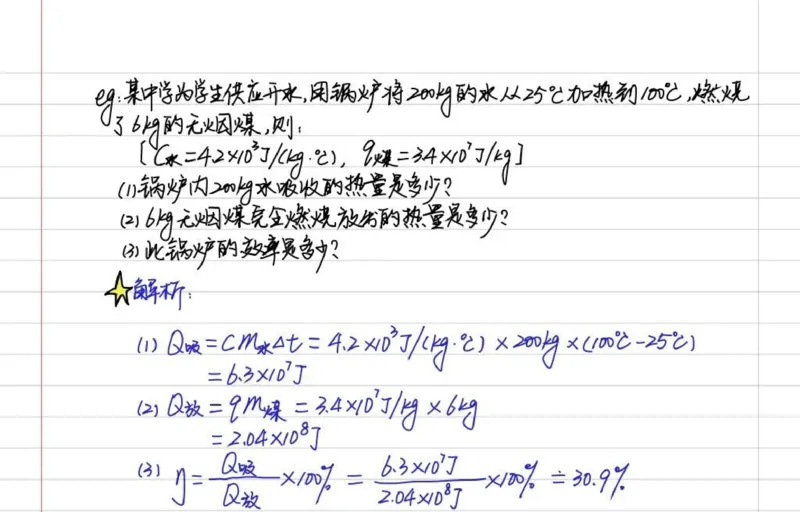 eg:某中学为学生供应开水,用锅炉将200kg的水从25℃加热到100℃,燃烧
了6kg的无烟煤,则:
[C水=4.2×10³J/(kg·℃), q煤=3.4×10⁷J/kg]
(1)锅炉内200kg水吸收的热量是多少?
(2)6kg无烟煤完全燃烧放出的热量是多少?
(3)此锅炉的效率是多少?
解析:
(1) Q吸=Cm水Δt=4.2×10³J/(kg·℃)×200kg×(100℃-25℃)
=6.3×10⁷J
(2) Q放=qm煤=3.4×10⁷J/kg×6kg
=2.04×10⁸J
(3) η=Q吸/Q放×100%=6.3×10⁷J/2.04×10⁸J×100%≐30.9%